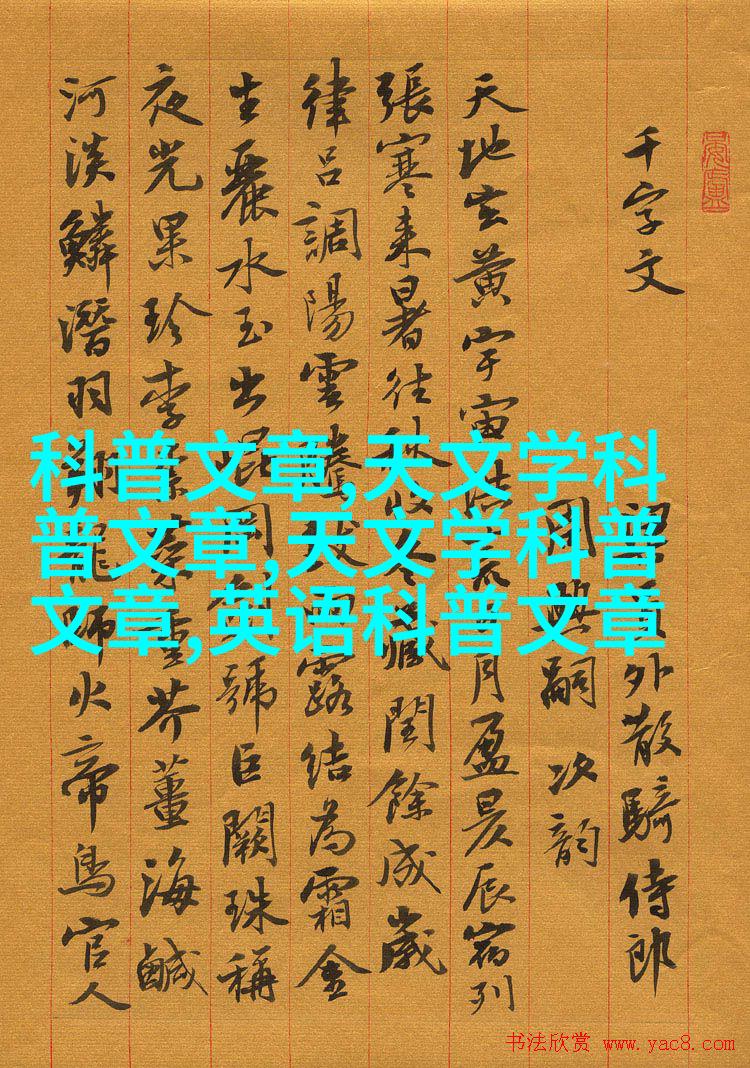 千字文
外散騎侍郎
周興嗣次韻
天地玄黃宇宙洪荒日月盈昃辰宿列
張寒来暑往秋收冬藏閏餘成歲
律呂調陽雲騰致雨露結為霜金
生麗水玉出崑岡劍號巨闕珠稱
夜光果珍李柰菜重芥薑海鹹
河淡鱗潛羽翔龍師火帝鳥官人
科普文章,天文学科
普文章,天文学科普
文章,英语科普文章
书法欣赏 www.yac8.com